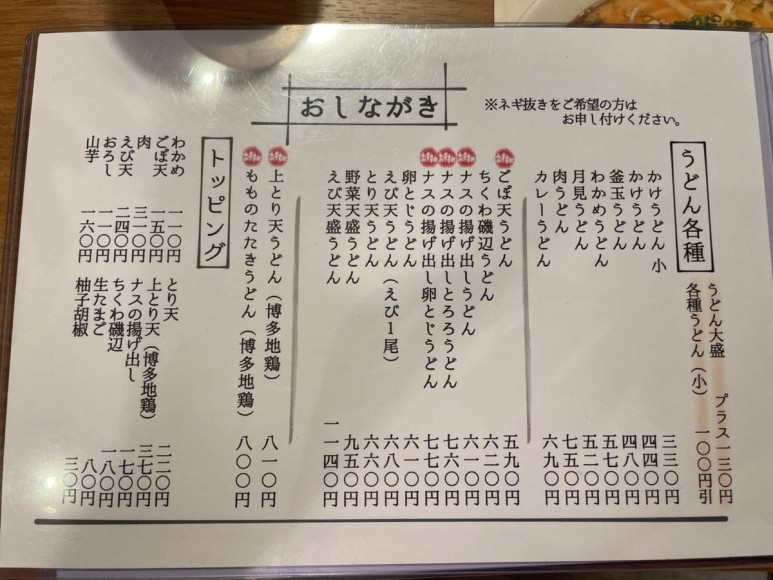 おしながき
※ネギ抜きをご希望の方は
お申し付けください。
うどん各種
うどん大盛 プラス一三〇円
各種うどん（小） 一〇〇円引
かけうどん 小 三三〇円
かけうどん 四四〇円
釜玉うどん 四八〇円
わかめうどん 五七〇円
月見うどん 五二〇円
肉うどん 七五〇円
カレーうどん 六九〇円
おすすめ ごぼ天うどん 五九〇円
ちくわ磯辺うどん 六二〇円
おすすめ ナスの揚げ出しうどん 六一〇円
おすすめ ナスの揚げ出しとろろうどん 七六〇円
おすすめ ナスの揚げ出し卵とじうどん 七七〇円
卵とじうどん 六一〇円
えび天うどん（えび1尾） 六八〇円
とり天うどん 六六〇円
野菜天盛うどん 九五〇円
えび天盛うどん 一一四〇円
おすすめ 上とり天うどん（博多地鶏） 八一〇円
おすすめ もものたたきうどん（博多地鶏） 八〇〇円
トッピング
わかめ 一一〇円
ごぼ天 一五〇円
肉 三一〇円
えび天 二四〇円
おろし 一一〇円
山芋 一六〇円
とり天 二二〇円
上とり天（博多地鶏） 三七〇円
ナスの揚げ出し 一七〇円
ちくわ磯辺 一八〇円
生たまご 八〇円
柚子胡椒 三〇円